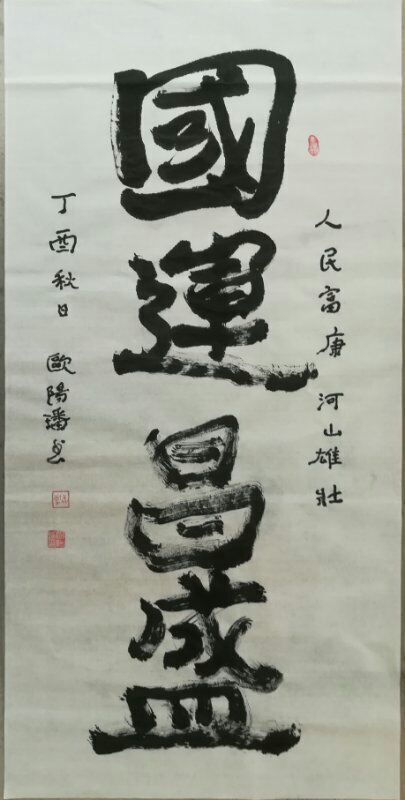 人民富康河山雄壯
國運昌盛
丁酉秋日 歐陽潘书